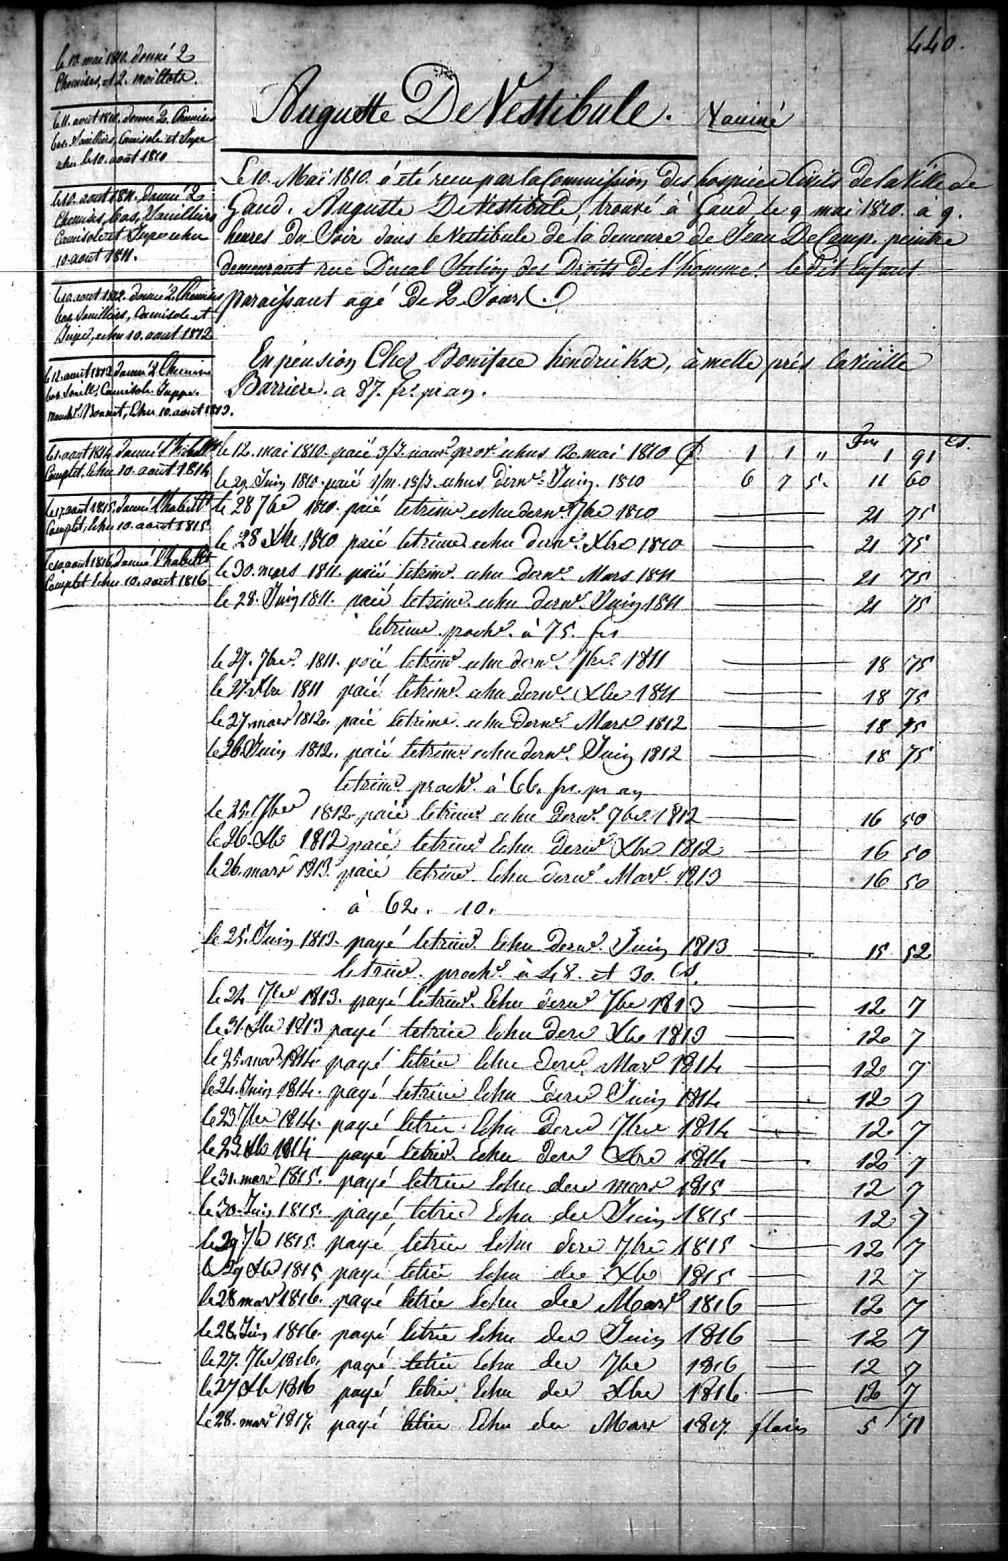 440.
le 10. mai 1810. donné 2
Chemises, et 2. maillots.
le 11. août 1810. donné 2. Chemises
bas, Souilliers, Camisole et Jupe
echu le 10. août 1810
le 10. août 1811. donné 2
Chemises, bas, Souilliers
Camisole et Jupe echu
10 août 1811.
le 10. août 1812. donné 2 Chemises
bas, Souilliers, Camisole et
Jupe, echu 10. août 1812
le 12. août 1813 donné 2 Chemises
bas, Souill. Camisole Juppe.
mouch. Bonnet, Echu 10. août 1813.
le 1. août 1814 donné l'habillt
Complet. echu 10. août 1814
le 17 août 1815. donné l'habillt
Complet, echu 10. août 1815.
le 10 août 1816 donné l'habillt
Complet echu 10. août 1816
Auguste De Vestibule. Vaciné
Le 10. Mai 1810. à été reçu par la Commission des hospices Civils de la Ville de
Gand. Auguste De Vestibule, trouvé à Gand le 9 mai 1810. à 9.
heures du Soir dans le Vestibule de la demeure de Jean De Camp. peintre
demeurant rue Ducal Section des Droits de l'homme! le dit Enfant
paraissant agé De 2 Jours.
En pension Chez Boniface hendrickx, à melle près la vieille
Barriere. a 87. fr. pr an.
Frs Cs.
le 12. mai 1810. paié 3/3 nour. prov. echus 12. mai 1810 1 1 " 1 91
le 29. Juin 1810. paié 1/m. 18/3. echus dernr. Juin. 1810 6 7 5. 11 60
le 28 7bre 1810. paié le trim echu dernr. 7bre 1810 21 75
le 28 Xbre 1810 paié le trim echu dernr. Xbre 1810 21 75
le 30. mars 1811. paié le trim. echu dernr. Mars 1811 21 75
le 28. Juin 1811. paié le trim. echu dernr. Juin 1811 21 75
le trim. proch. à 75. frs
le 27. 7bre. 1811. paié le trim. echu dernr. 7bre. 1811 18 75
le 27 Xbre 1811 paié le trim. echu dernr. Xbre 1811 18 75
le 27. mars 1812. paié le trim. echu dernr. Mars 1812 18 75
le 26. Juin 1812. paié le trim. echu dernr. Juin 1812 18 75
le trim. proch. à 66. frs. pr an
le 25. 7bre 1812 paié le trim. echu dernr. 7bre. 1812 16 50
le 26. Xbre 1812 paié le trim. Echu dernr. Xbre 1812 16 50
le 26. mars 1813. paié le trim. Echu dernr. Mars. 1813 16 50
à 62. 10.
le 25. Juin 1813. payé le trim. Echu dernr. Juin 1813 15 52
le trim. proch. à 48. et 30. Cs.
le 24 7bre 1813. payé le trim. Echu dernr 7bre 1813 12 7
le 31. Xbre 1813 payé le trim Echu der Xbre 1813 12 7
le 25. mars 1814. payé le trim Echu der. Mars 1814 12 7
le 24. Juin 1814. payé le trim Echu der Juin 1814 12 7
le 23 7bre 1814. payé le trim Echu der 7bre 1814 12 7
le 23 Xbre 1814 payé le trim. Echu der Xbre 1814 12 7
le 31. mars 1815. payé le trim Echu der mars 1815 12 7
le 30. Juin 1815. payé le trim Echu der Juin 1815 12 7
le 29 7b 1815. payé le trim Echu der 7bre 1815 12 7
le 29 Xbre 1815 payé le trim Echu der Xbre 1815 12 7
le 28 mars 1816. payé le trim Echu der Mars 1816 12 7
le 28. Juin 1816. payé le trim Echu der Juin 1816 12 7
le 27. 7bre 1816. payé le trim Echu der 7bre 1816 12 7
le 27 Xbre 1816 payé le trim. Echu der Xbre 1816 12 7
le 28. mars 1817. payé le trim Echu der Mars 1817 florins 5 71